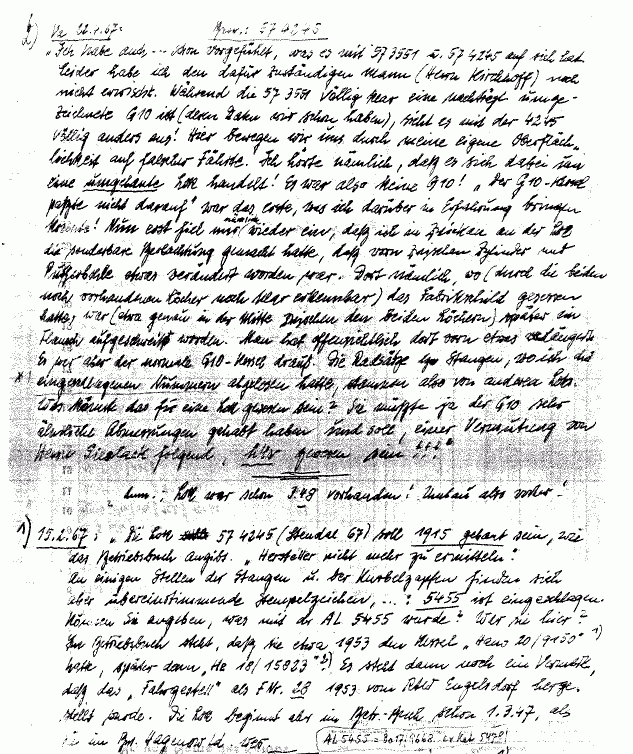 2) Va 22.1.67: Grw.: 57 4245
"Ich habe auch ... schon vorgefühlt, was es mit 57 3551 u. 57 4245 auf sich hat
leider habe ich den dafür zuständigen Mann (Herrn Kirchhoff) noch
nicht erwischt. Während die 57 3551 völlig klar eine nachträgl umge-
zeichnete G10 ist (deren Daten wir schon haben), sieht es mit der 4245
völlig anders aus! Hier bewegen wir uns durch meine eigene Oberfläch-
lichkeit auf falscher Fährte. Ich hörte nämlich, daß es sich dabei um
eine umgebaute Lok handelt! Es war also keine G10! "Der G10-Kessel
paßte nicht darauf" war das erste, was ich darüber in Erfahrung bringen
konnte! Nun erst fiel mir nämlich wieder ein, daß ich in an der Lok
die sonderbare Beobachtung gemacht hatte, daß vorn zwischen Zylinder und
Pufferbohle etwas verändert worden war. Dort nämlich, wo (durch die beiden
noch vorhandenen Löcher noch klar erkennbar) das Fabrikschild gesessen
hatte, war (etwa genau in der Mitte zwischen den beiden Löchern) später ein
Flansch aufgeschweißt worden. Man hat offensichtlich dort vorn etwas verlängert.
Es war aber der normale G10-Kessel drauf. Die Radsätze Stangen, wo ich die
x) eingeschlagenen Nummern abgelesen hatte, stammen also von anderen Loks.
Was könnte das für eine Lok gewesen sein? Sie müßte ja der G10 sehr
ähnliche Abmessungen gehabt haben und soll, einer Vermutung von
Herrn folgend, gewesen sein!!!"
Anm.: Lok war schon 3.48 vorhanden! Umbau also vorher!
1) 15.2.67: "Die Lok 57 4245 (Stendal 67) soll 1915 gebaut sein, wie
das Betriebsbuch angibt. "Hersteller nicht mehr zu ermitteln".
An einigen Stellen der Stangen u. der Kurbelzapfen finden sich
aber übereinstimmende Stempelzeichen, ...: 5455 ist eingeschlagen.
Können Sie angeben, was mit dr AL 5455 wurde? Wer sie hier?
Im Betriebsbuch steht, daß sie etwa 1953 den Kessel "Hano 20/9150" 1)
hatte, später dann "He 18/15823" 2). Es steht dann noch ein Vermerk,
daß das "Fahrgestell" als FNr. 28 1953 vom RAW Engelsdorf herge-
stellt wurde. Die Lok beginnt aber im Betr.-Buch schon 1.3.47, als
sie im Bw. Hagenow-Ld. war.
AL 5455 =